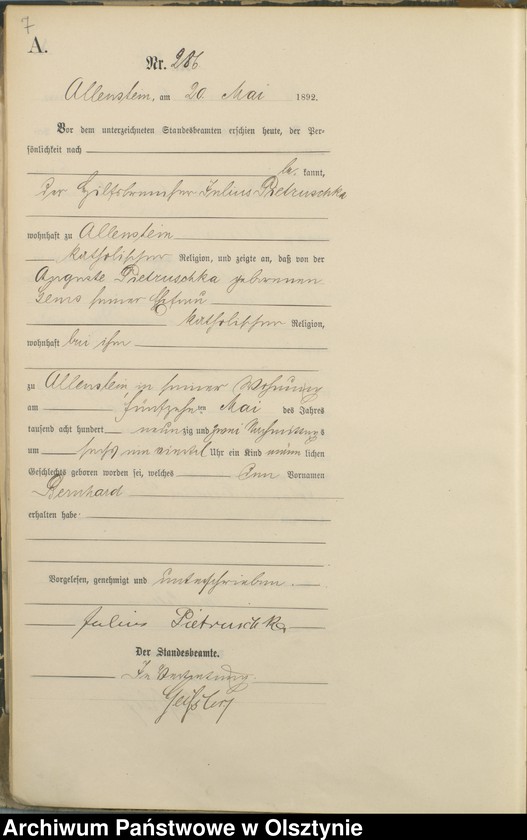 7
A.
Nr. 286
Allenstein, am 20 Mai 1892.
Vor dem unterzeichneten Standesbeamten erschien heute, der Per-
sönlichkeit nach
be kannt,
der Hilfsbremser Julius Pietruschka
wohnhaft zu Allenstein
katholischer Religion, und zeigte an, daß von der
Auguste Pietruschka geborenen
seiner Ehefrau
katholischer Religion,
wohnhaft bei ihm
zu Allenstein in seiner Wohnung
am fünfzehnten Mai des Jahres
tausend acht hundert neunzig und zwei Nachmittags
um sechs ein viertel Uhr ein Kind männlichen
Geschlechts geboren worden sei, welches den Vornamen
Bernhard
erhalten habe.
Vorgelesen, genehmigt und unterschrieben.
Julius Pietruschka
Der Standesbeamte.
In Vertretung
Archiwum Państwowe w Olsztynie